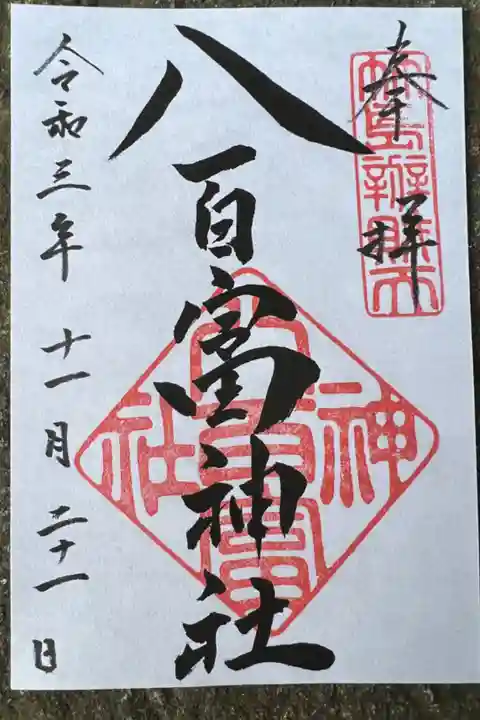 奉拝
竹島辨財天
八百富神社
八百富
神社
令和三年十一月二十一日